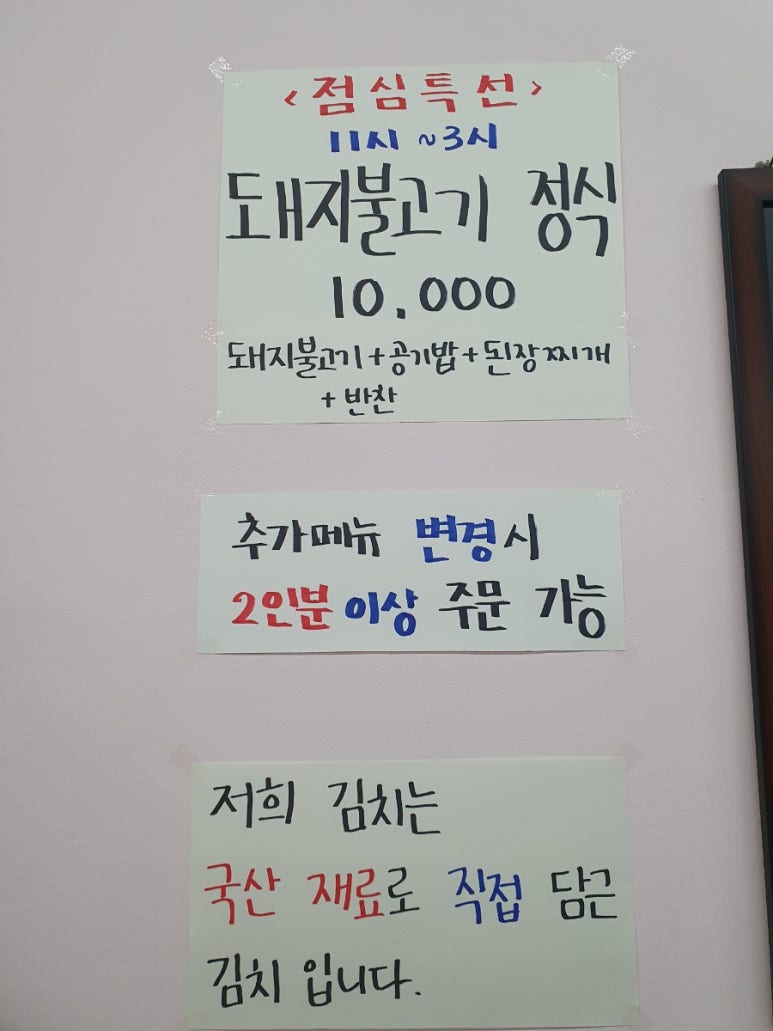 <점심특선>
11시 ~3시
돼지불고기 정식
10.000
돼지불고기+공기밥+된장찌개
+ 반찬
추가메뉴 변경시
2인분 이상 주문 가능
저희 김치는
국산 재료로 직접 담근
김치 입니다.